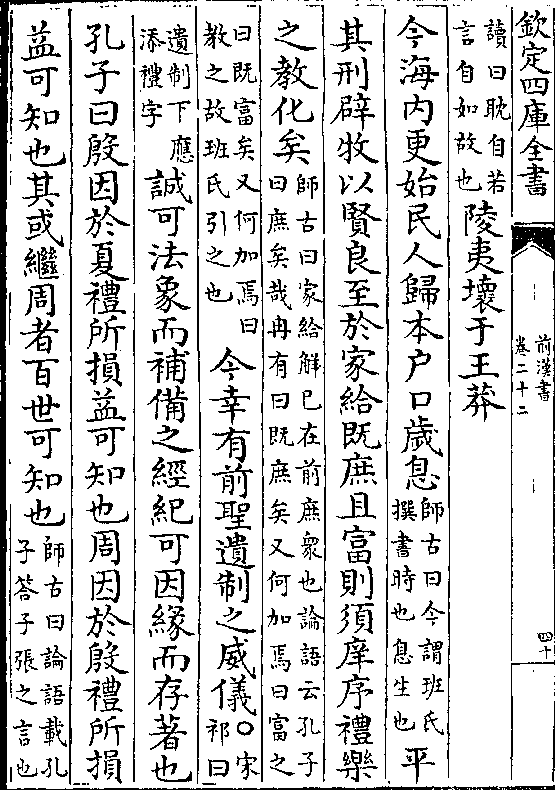 欽定四庫全書
前漢書
卷二十二
四十
讀曰耽自若
言自如故也
陵夷壞于王莽
今海内更始民人歸本户口歲息
師古曰今謂班氏
撰書時也息生也
平
其刑辟牧以賢良至於家給既庶且富則須庠序禮樂
之教化矣
師古曰家給解已在前庶衆也論語云孔子
曰庶矣哉冉有曰既庶矣又何加焉曰富之
曰既富矣又何加焉曰
教之故班氏引之也
今幸有前聖遺制之威儀
○宋
祁曰
遺制下應
添禮字
誠可法象而補備之經紀可因緣而存著也
孔子曰殷因於夏禮所損益可知也周因於殷禮所損
益可知也其或繼周者百世可知也
師古曰論語載孔
子答子張之言也